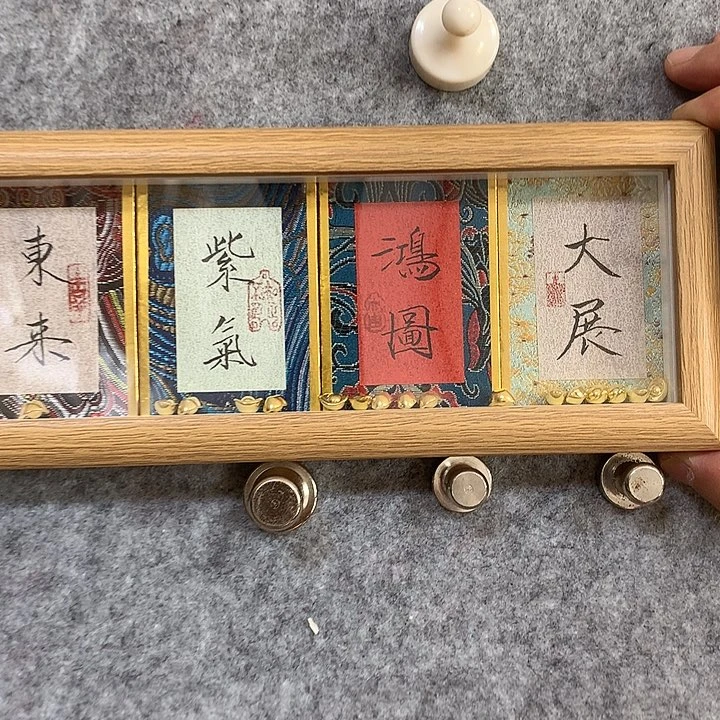 大展
鴻圖
紫氣
東来